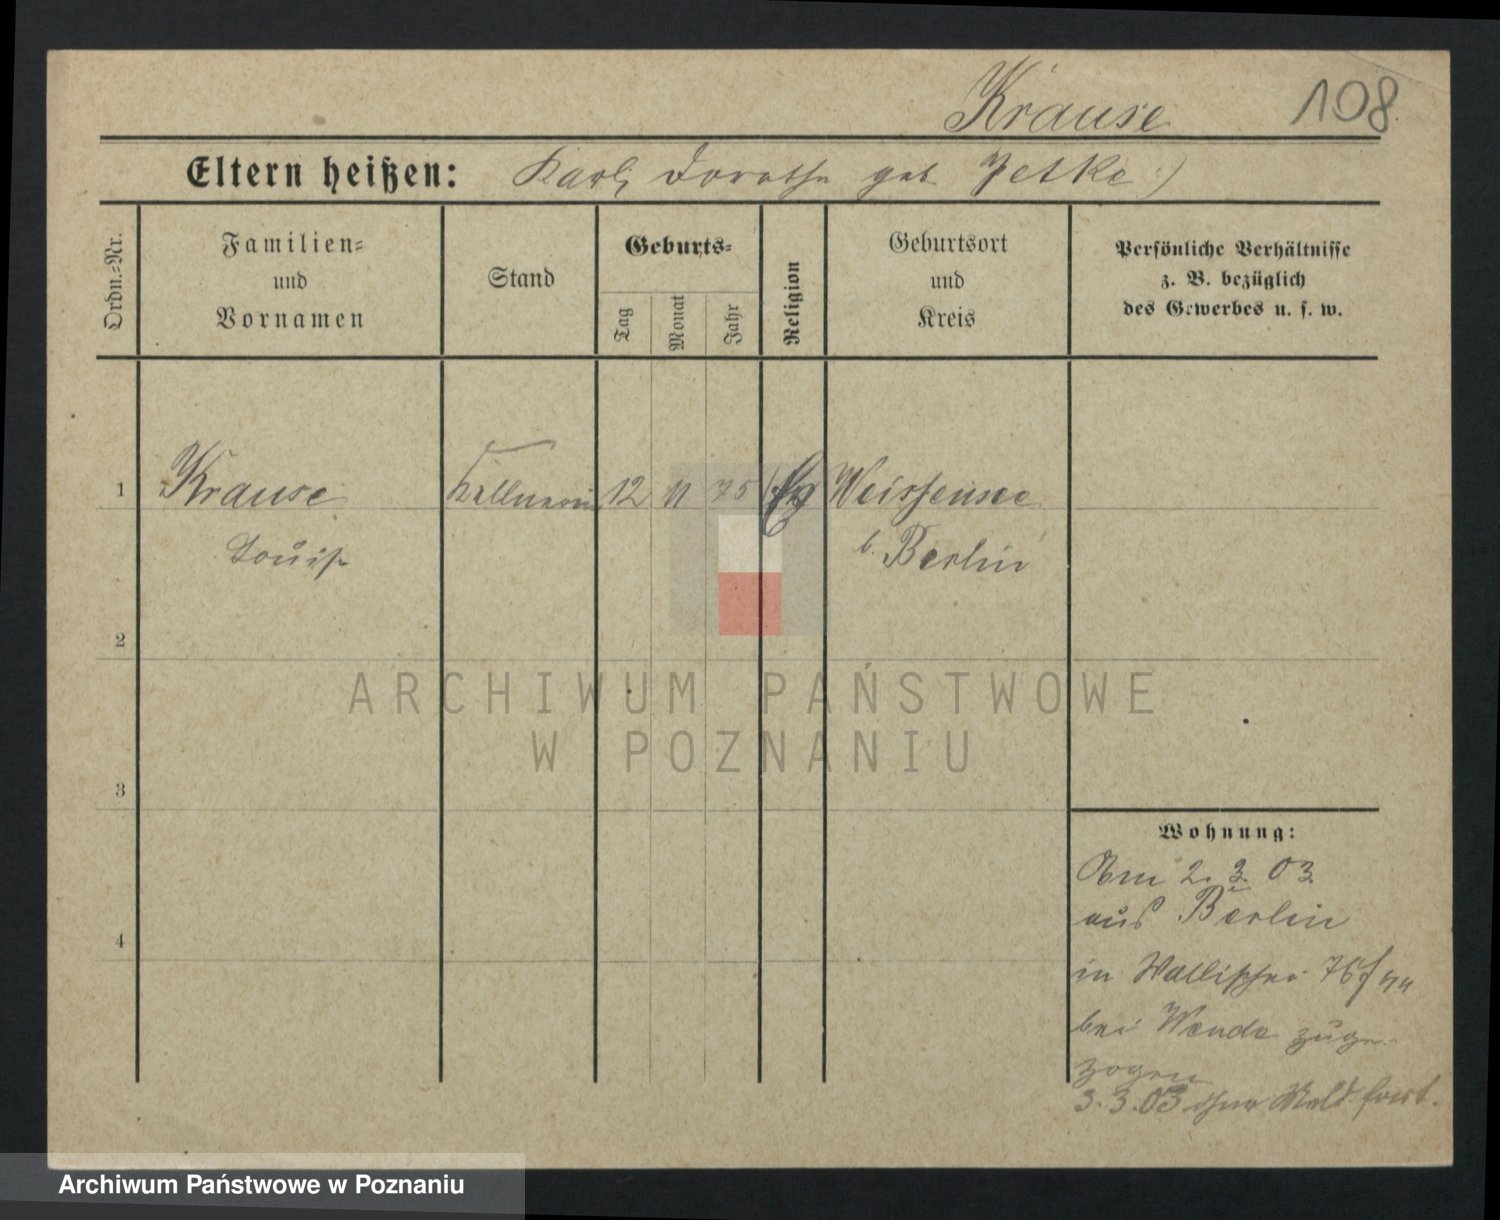 Krause
108
Eltern heißen: Karl, Dorothe geb. Jetke
Ordn.-Nr.
Familien-
und
Vornamen
Stand
Geburts-
Tag
Monat
Jahr
Religion
Geburtsort
und
Kreis
Persönliche Verhältnisse
z. B. bezüglich
des Gewerbes u. s. w.
1 Krause Kellnerin 12 11 75 Ev Weissensee
Louise b. Berlin
2
3
4
ARCHIWUM PAŃSTWOWE
W POZNANIU
Wohnung:
Am 2. 3. 03
aus Berlin
in Wallischei 76
bei Wende zuge-
zogen
3.3.03 ohne Meld. fort.
Archiwum Państwowe w Poznaniu